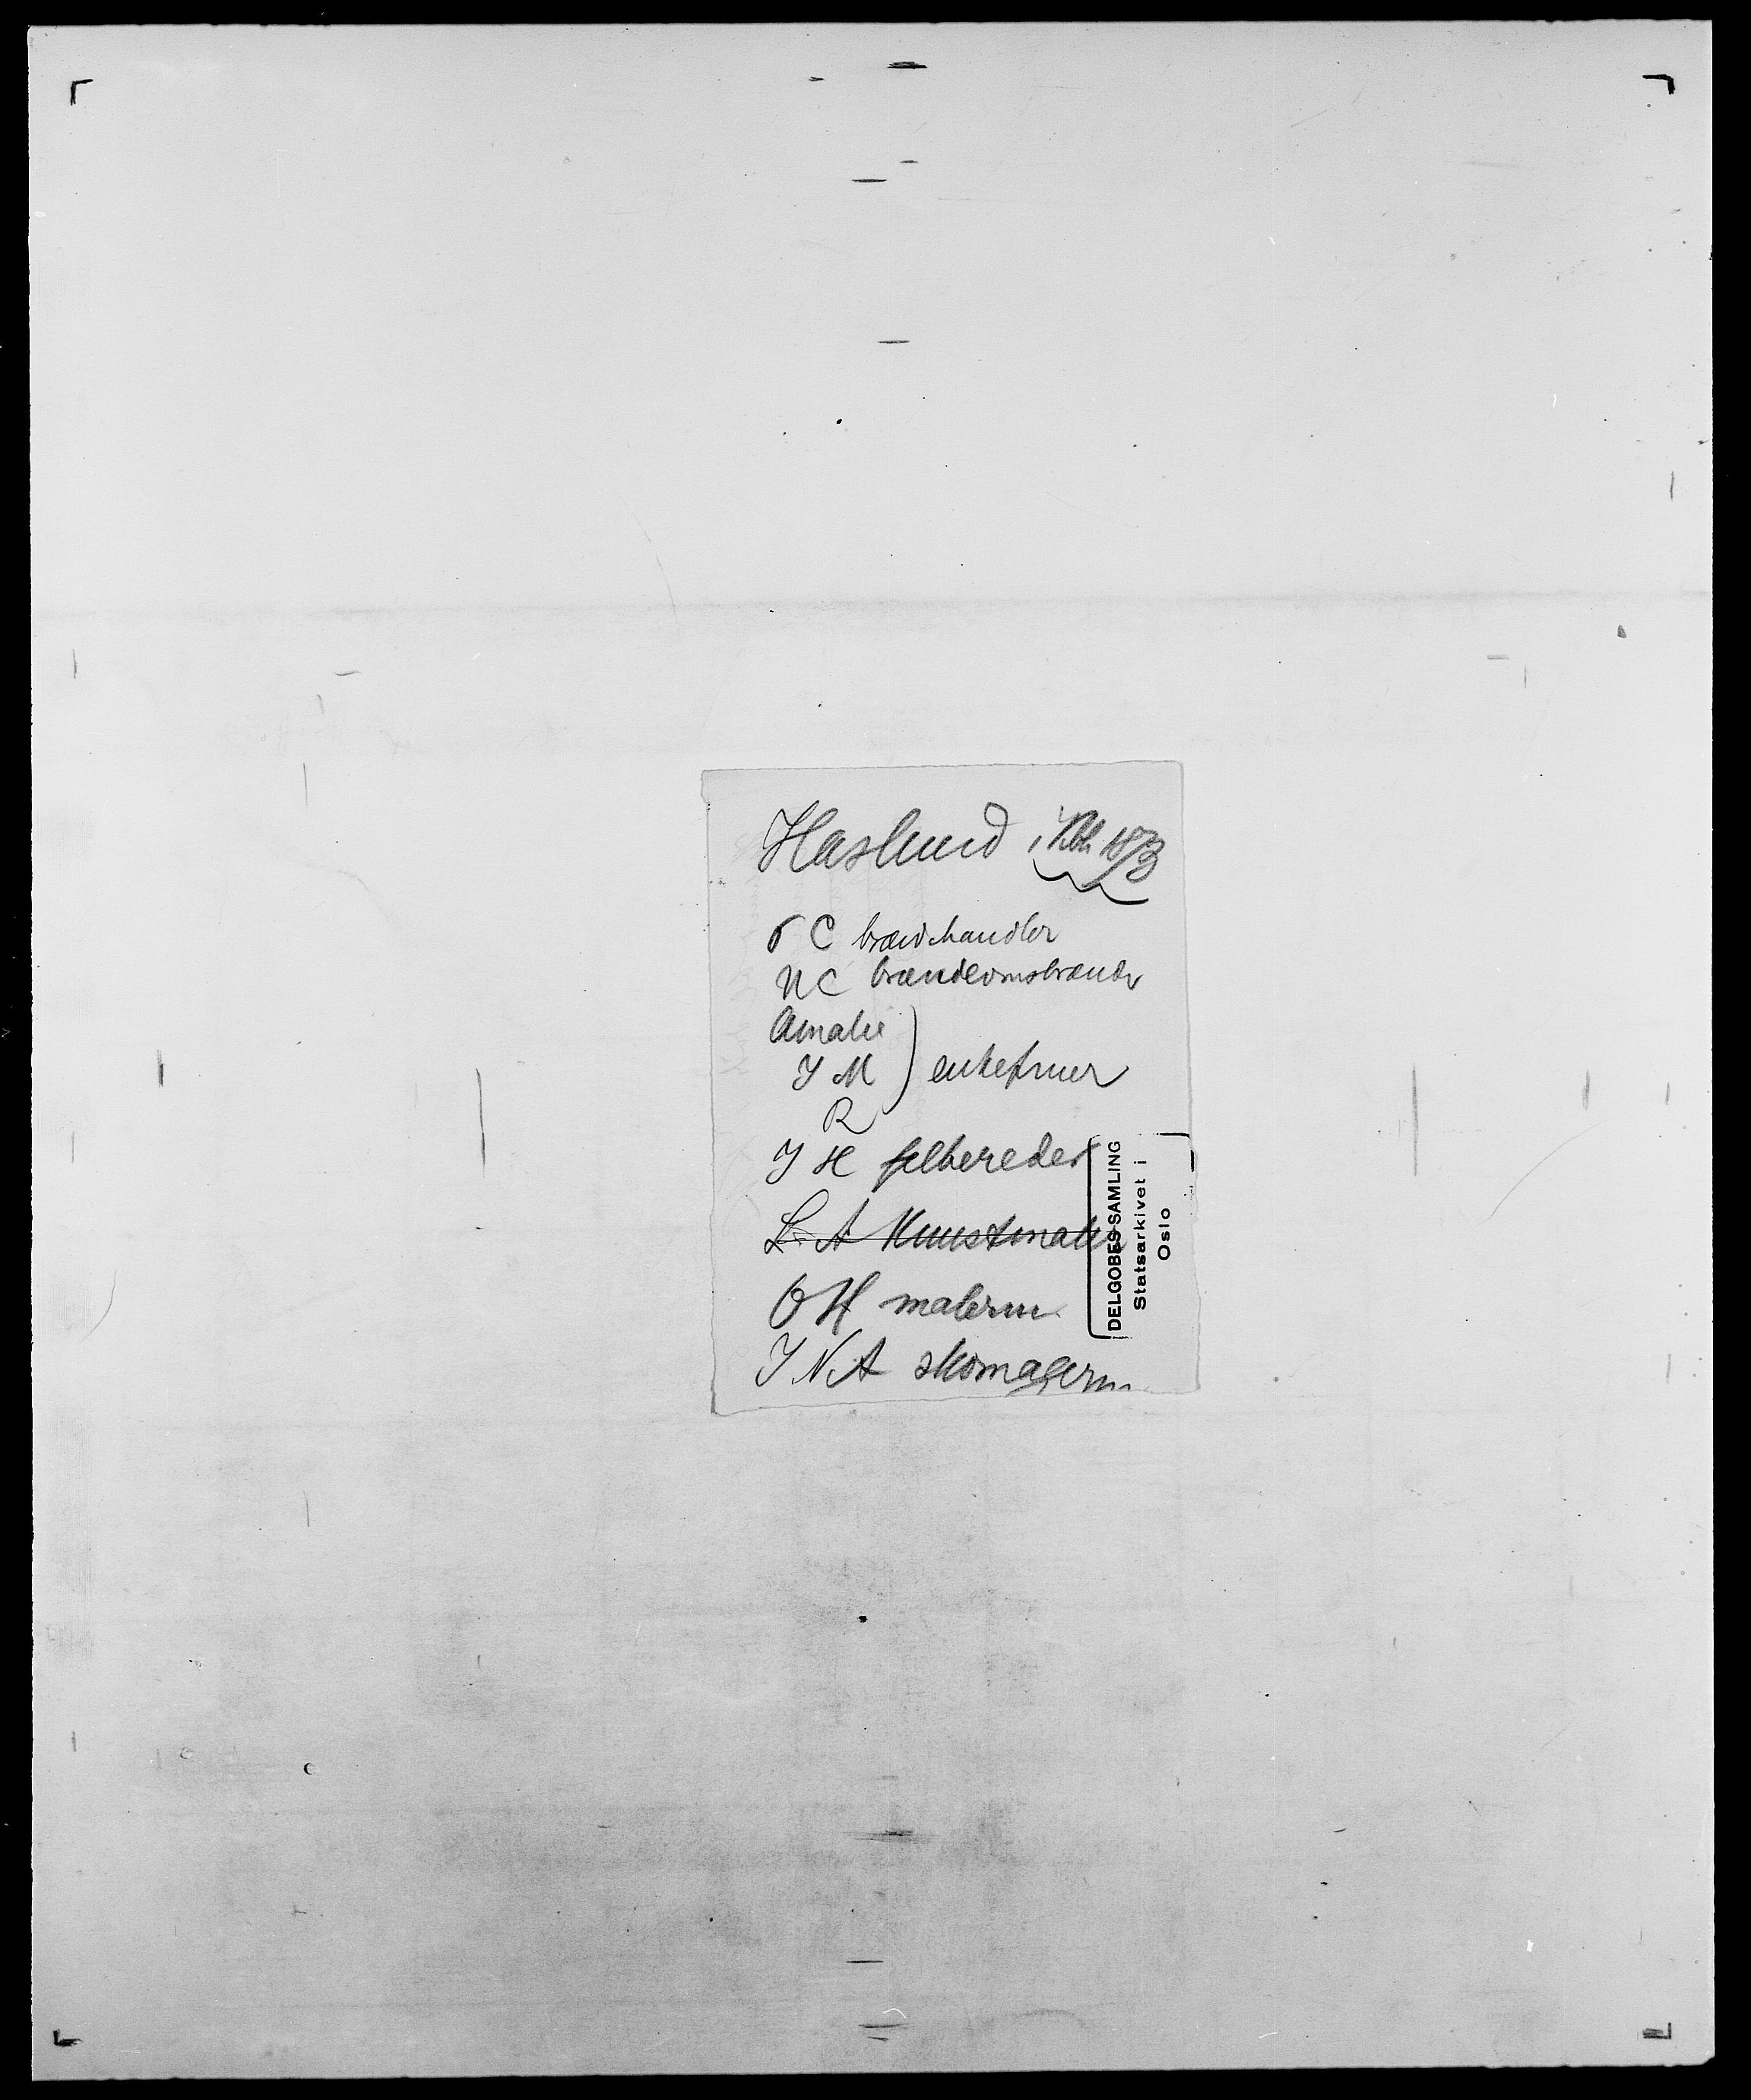 Haslund i Kbh 1873
C brændehandler
N C brændeomsbrænder
Amalie
J M ) enkefruer
R
J H feltbereder
L. A Kunstmaler
O H malerm.
J N A skomagerm.
DELGOBES SAMLING
Statsarkivet i
Oslo